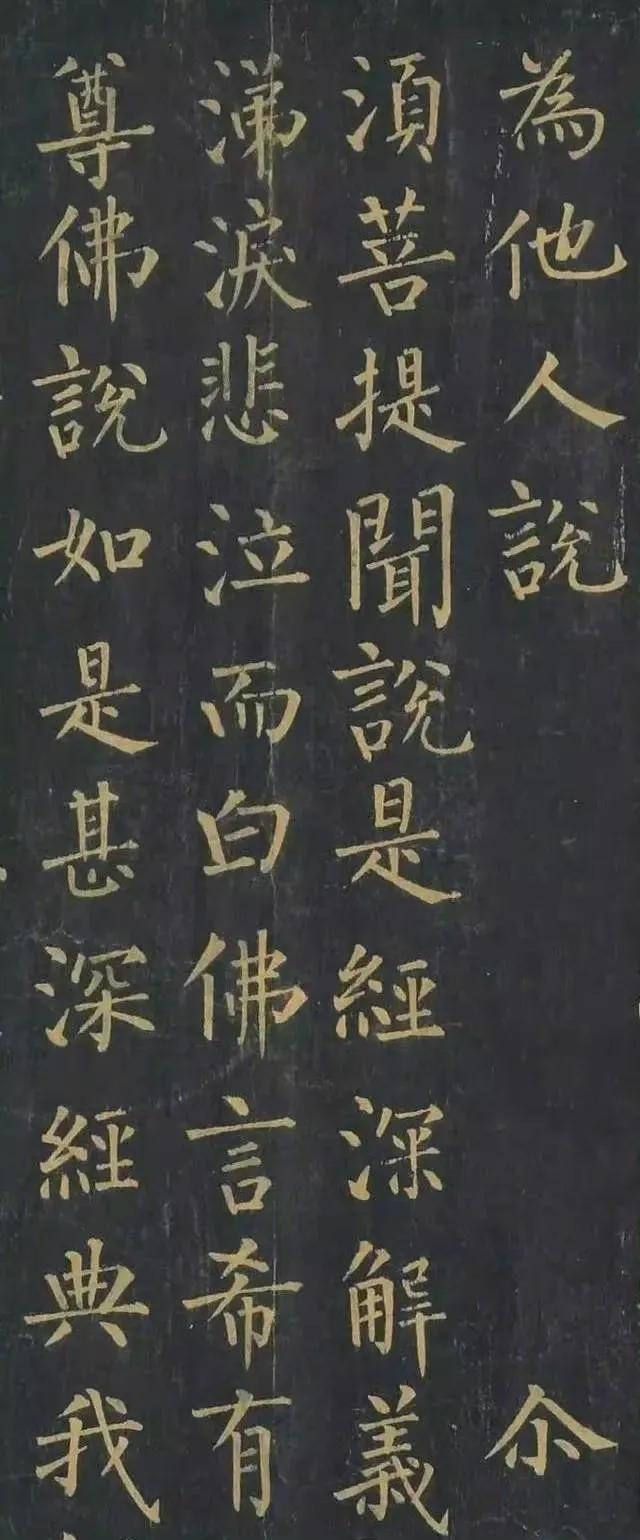 為他人說　尒
湏菩提聞說是經深解義
涕淚悲泣而白佛言希有
尊佛說如是甚深經典我